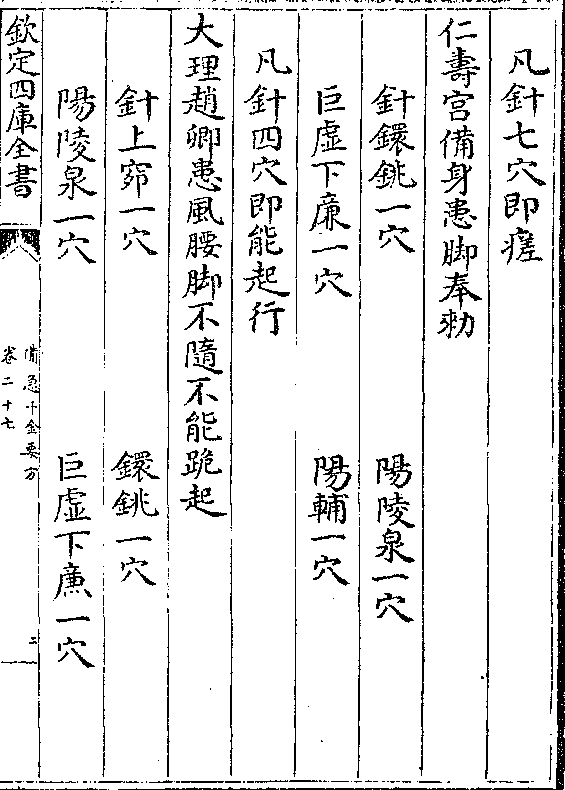 凡針七穴即瘥
仁壽宮備身患脚奉勑
針鐶銚一穴　陽陵泉一穴
巨虛下廉一穴　陽輔一穴
凡針四穴即能起行
大理趙卿患風腰脚不隨不能跪起
針上窌一穴　鐶銚一穴
陽陵泉一穴　巨虛下廉一穴
欽定四庫全書
備急千金要方
卷二十七
二